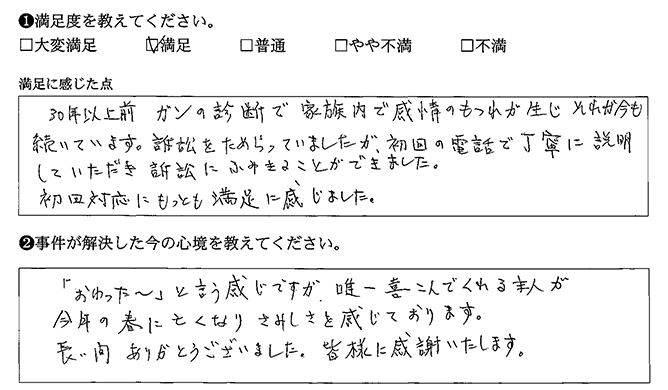 ❶満足度を教えてください。
□大変満足 ☑満足 □普通 □やや不満 □不満
満足に感じた点
30年以上前 ガンの診断で 家族内で感情のもつれが生じ それが今も
続いています。訴訟をためらっていましたが、初回の電話で丁寧に説明
していただき 訴訟にふみきることができました。
初回対応にもっとも満足に感じました。
❷事件が解決した今の心境を教えてください。
「おわった〜」と言う感じですが、唯一喜こんでくれる主人が
今年の春に亡くなり さみしさを感じております。
長い間 ありがとうございました。皆様に感謝いたします。